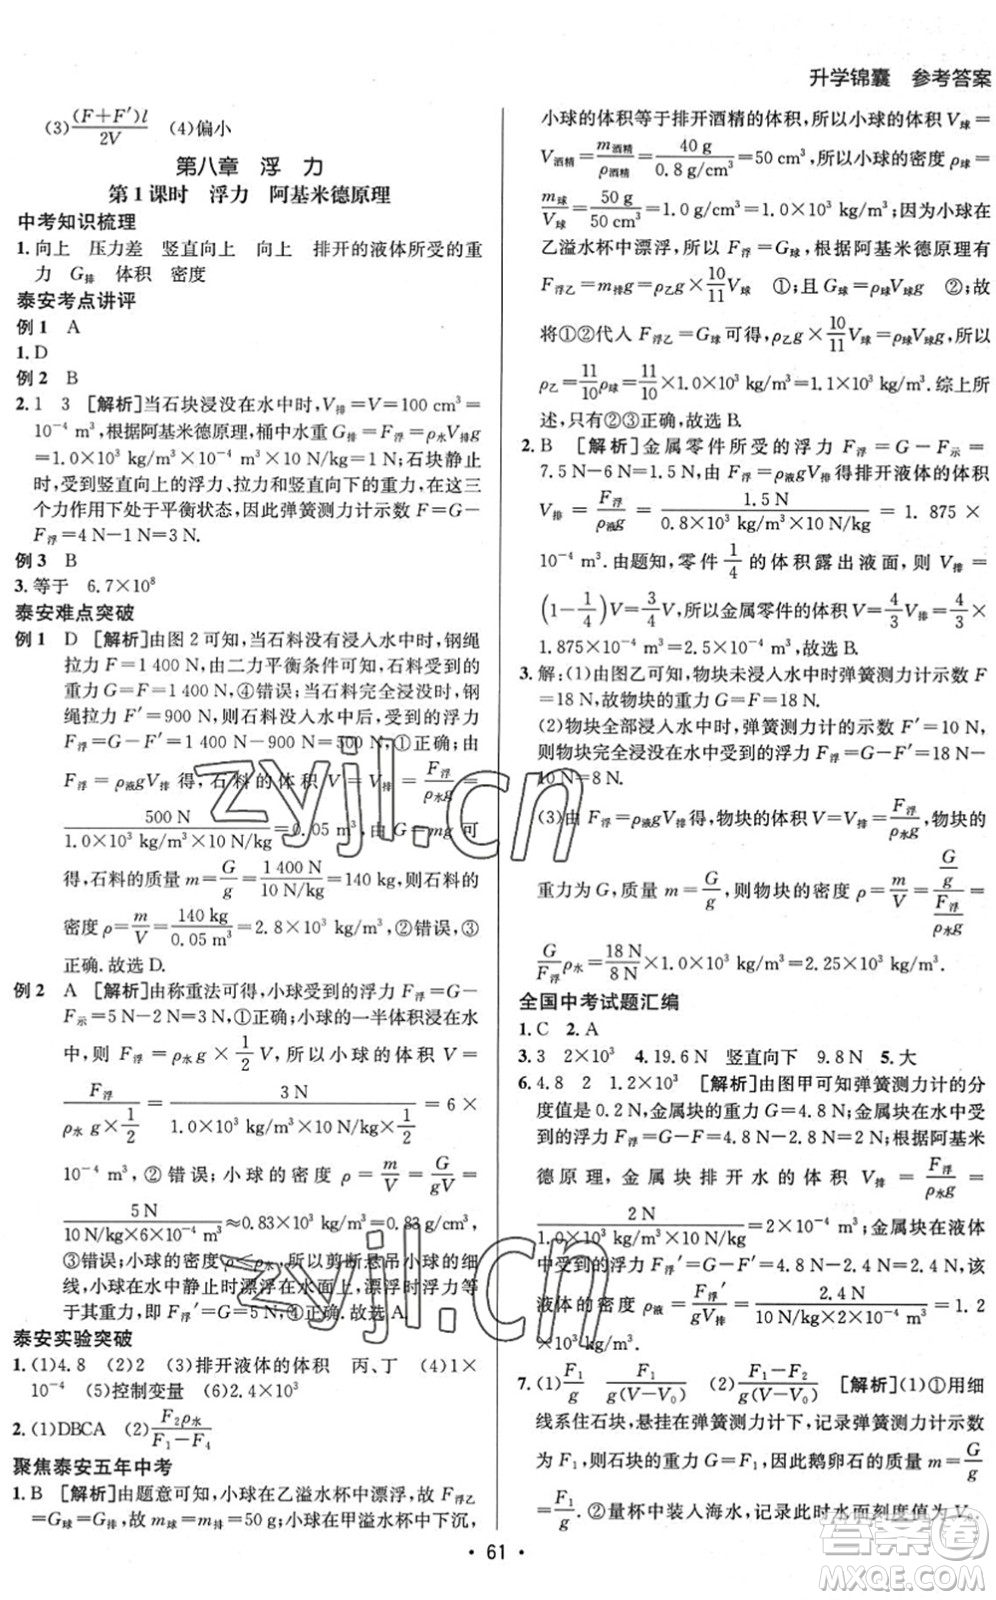 升学锦囊　参考答案
(3)(F+F′)l/2V　(4)偏小
第八章　浮　力
第 1 课时　浮力　阿基米德原理
中考知识梳理
1.向上　压力差　竖直向上　向上　排开的液体所受的重
力　G排　体积　密度
泰安考点讲评
例 1　A
1.D
例 2　B
2.1　3　[解析]当石块浸没在水中时,V排=V=100 cm³=
10⁻⁴ m³,根据阿基米德原理,桶中水重 G排=F浮=ρ水V排g
=1.0×10³ kg/m³×10⁻⁴ m³×10 N/kg=1 N;石块静止
时,受到竖直向上的浮力、拉力和竖直向下的重力,在这三
个力作用下处于平衡状态,因此弹簧测力计示数 F=G-
F浮=4 N-1 N=3 N.
例 3　B
3.等于　6.7×10⁸
泰安难点突破
例 1　D　[解析]由图 2 可知,当石料没有浸入水中时,钢绳
拉力 F=1 400 N,由二力平衡条件可知,石料受到的
重力 G=F=1 400 N,④错误;当石料完全浸没时,钢
绳拉力 F′=900 N,则石料浸没入水中后,受到的浮力
F浮=G-F′=1 400 N-900 N=500 N,①正确;由
F浮=ρ液gV排 得,石料的体积 V=V排=F浮/ρ水g=
500 N/(1.0×10³ kg/m³×10 N/kg)=0.05 m³,由 G=mg 可
得,石料的质量 m=G/g=1 400 N/10 N/kg=140 kg,则石料的
密度 ρ=m/V=140 kg/0.05 m³=2.8×10³ kg/m³,②错误,③
正确.故选 D.
例 2　A　[解析]由称重法可得,小球受到的浮力 F浮=G-
F示=5 N-2 N=3 N,①正确;小球的一半体积浸在水
中,则 F浮=ρ水g×1/2 V,所以小球的体积 V=
F浮/(ρ水g×1/2)=3 N/(1.0×10³ kg/m³×10 N/kg×1/2)=6×
10⁻⁴ m³,②错误;小球的密度 ρ=m/V=G/gV=
5 N/(10 N/kg×6×10⁻⁴ m³)≈0.83×10³ kg/m³,
③错误;小球的密度 ρ<ρ水,所以剪断悬吊小球的细
线,小球在水中静止时漂浮在水面上,漂浮时浮力等
于其重力,即 F浮′=G=5 N,④正确.故选 A.
泰安实验突破
1.(1)4.8　(2)2　(3)排开液体的体积　丙、丁　(4)1×
10⁻⁴　(5)控制变量　(6)2.4×10³
2.(1)DBCA　(2)F₂ρ水/(F₁-F₄)
聚焦泰安五年中考
1.B　[解析]由题意可知,小球在乙溢水杯中漂浮,故 F浮乙
=G球=G排,故 m球=m排=50 g;小球在甲溢水杯中下沉,
小球的体积等于排开酒精的体积,所以小球的体积 V球=
V酒精=m酒精/ρ酒精=40 g/0.8 g/cm³=50 cm³,小球的密度 ρ球=
m球/V球=50 g/50 cm³=1.0 g/cm³=1.0×10³ kg/m³;因为小球在
乙溢水杯中漂浮,所以 F浮=G球,根据阿基米德原理有
F浮乙=m排g=ρ乙V排g=ρ乙g×10/11 V球　①;且 G球=ρ球V球g　②;故
将①②代入 F浮乙=G球可得,ρ乙g×10/11 V球=ρ球V球g,所以
ρ乙=11/10 ρ球=11/10×1.0×10³ kg/m³=1.1×10³ kg/m³.综上所
述,只有②③正确,故选 B.
2.B　[解析]金属零件所受的浮力 F浮=G-F示=
7.5 N-6 N=1.5 N,由 F浮=ρ液gV排得排开液体的体积
V排=F浮/ρ液g=1.5 N/(0.8×10³ kg/m³×10 N/kg)=1.875×
10⁻⁴ m³.由题知,零件 1/4 的体积露出液面,则 V排=
(1-1/4)V=3/4 V,所以金属零件的体积 V=4/3 V排=4/3×
1.875×10⁻⁴ m³=2.5×10⁻⁴ m³.故选 B.
3.解:(1)由图乙可知,物块未浸入水中时弹簧测力计示数 F
=18 N,故物块的重力 G=F=18 N.
(2)物块全部浸入水中时,弹簧测力计的示数 F′=10 N,
则物块完全浸没在水中受到的浮力 F浮=G-F′=18 N-
10 N=8 N.
(3)由 F浮=ρ液gV排 得,物块的体积 V=V排=F浮/ρ水g,物块的
重力为 G,质量 m=G/g,则物块的密度 ρ=m/V=(G/g)/(F浮/ρ水g)=
G/F浮 ρ水=18 N/8 N×1.0×10³ kg/m³=2.25×10³ kg/m³.
全国中考试题汇编
1.C　2.A
3.3　2×10³　4.19.6 N　竖直向下　9.8 N　5.大
6.4.8　2　1.2×10³　[解析]由图甲可知弹簧测力计的分
度值是 0.2 N,金属块的重力 G=4.8 N;金属块在水中受
到的浮力 F浮=G-F=4.8 N-2.8 N=2 N;根据阿基米
德原理,金属块排开水的体积 V排=F浮/ρ水g=
2 N/(1.0×10³ kg/m³×10 N/kg)=2×10⁻⁴ m³,金属块在液体
中受到的浮力 F浮′=G-F′=4.8 N-2.4 N=2.4 N,该
液体的密度 ρ液=F浮′/gV排=2.4 N/(10 N/kg×2×10⁻⁴ m³)=1.2
×10³ kg/m³.
7.(1)F₁/g　F₁/g(V-V₀)　(2)(F₁-F₂)/g(V-V₀)　[解析](1)①用细
线系住石块,悬挂在弹簧测力计下,记录弹簧测力计示数
为 F₁,则石块的重力 G=F₁,因此鹅卵石的质量 m=G/g
=F₁/g.②量杯中装入海水,记录此时水面刻度值为 V₀.
• 61 •
zyjl.cn
zyjl.cn
答案圈
MXQE.COM